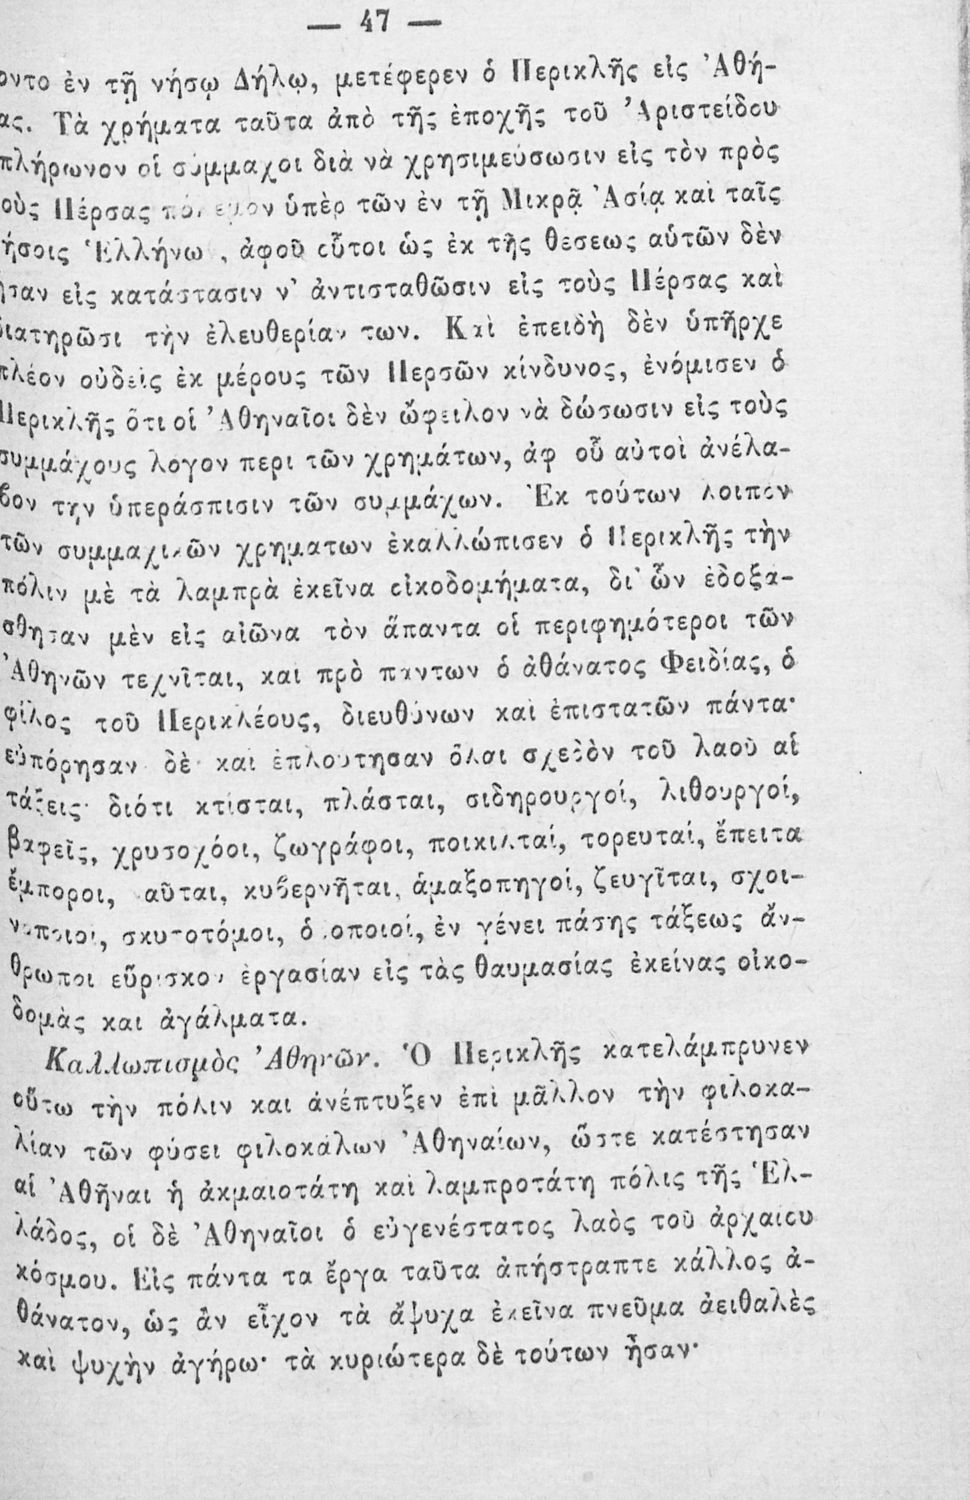 — 47 —
οντο ἐν τῇ νήσῳ Δήλῳ, μετέφερεν ὁ Περικλῆς εἰς Ἀθή-
ας. Τὰ χρήματα ταῦτα ἀπὸ τῆς ἐποχῆς τοῦ Ἀριστείδου
πλήρωνον οἱ σύμμαχοι διὰ νὰ χρησιμεύσωσιν εἰς τὸν πρὸς
οὺς Πέρσας πόλεμον ὑπὲρ τῶν ἐν τῇ Μικρᾷ Ἀσίᾳ καὶ ταῖς
ήσοις Ἑλλήνω , ἀφοῦ οὗτοι ὡς ἐκ τῆς θέσεως αὑτῶν δὲν
ἦσαν εἰς κατάστασιν ν' ἀντισταθῶσιν εἰς τοὺς Πέρσας καὶ
διατηρῶσι τὴν ἐλευθερίαν των. Καὶ ἐπειδὴ δὲν ὑπῆρχε
πλέον οὐδεὶς ἐκ μέρους τῶν Περσῶν κίνδυνος, ἐνόμισεν ὁ
Περικλῆς ὅτι οἱ Ἀθηναῖοι δὲν ὤφειλον νὰ δώσωσιν εἰς τοὺς
συμμάχους λόγον περὶ τῶν χρημάτων, ἀφ οὗ αὐτοὶ ἀνέλα-
βον τὴν ὑπεράσπισιν τῶν συμμάχων. Ἐκ τούτων λοιπὸν
τῶν συμμαχικῶν χρημάτων ἐκαλλώπισεν ὁ Περικλῆς τὴν
πόλιν μὲ τὰ λαμπρὰ ἐκεῖνα οἰκοδομήματα, δι' ὧν ἐδοξά-
σθησαν μὲν εἰς αἰῶνα τὸν ἅπαντα οἱ περιφημότεροι τῶν
Ἀθηνῶν τεχνῖται, καὶ πρὸ πάντων ὁ ἀθάνατος Φειδίας, ὁ
φίλος τοῦ Περικλέους, διευθύνων καὶ ἐπιστατῶν πάντα·
εὐπόρησαν δὲ καὶ ἐπλούτησαν ὅλαι σχεδὸν τοῦ λαοῦ αἱ
τάξεις· διότι κτίσται, πλάσται, σιδηρουργοί, λιθουργοί,
βαφεῖς, χρυσοχόοι, ζωγράφοι, ποικιλταί, τορευταί, ἔπειτα
ἔμποροι, αῦται, κυβερνῆται, ἁμαξοπηγοί, ζευγῖται, σχοι-
νοποιοί, σκυτοτόμοι, ὁδοποιοί, ἐν γένει πάσης τάξεως ἄν-
θρωποι εὕρισκον ἐργασίαν εἰς τὰς θαυμασίας ἐκείνας οἰκο-
δομὰς καὶ ἀγάλματα.
Καλλωπισμὸς Ἀθηνῶν. Ὁ Περικλῆς κατελάμπρυνεν
οὕτω τὴν πόλιν καὶ ἀνέπτυξεν ἐπὶ μᾶλλον τὴν φιλοκα-
λίαν τῶν φύσει φιλοκάλων Ἀθηναίων, ὥστε κατέστησαν
αἱ Ἀθῆναι ἡ ἀκμαιοτάτη καὶ λαμπροτάτη πόλις τῆς Ἑλ-
λάδος, οἱ δὲ Ἀθηναῖοι ὁ εὐγενέστατος λαὸς τοῦ ἀρχαίου
κόσμου. Εἰς πάντα τὰ ἔργα ταῦτα ἀπήστραπτε κάλλος ἀ-
θάνατον, ὡς ἂν εἶχον τὰ ἄψυχα ἐκεῖνα πνεῦμα ἀειθαλὲς
καὶ ψυχὴν ἀγήρω· τὰ κυριώτερα δὲ τούτων ἦσαν·